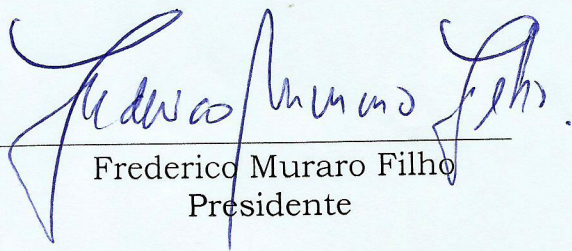 Frederico Muraro Filho.
Frederico Muraro Filho
Presidente